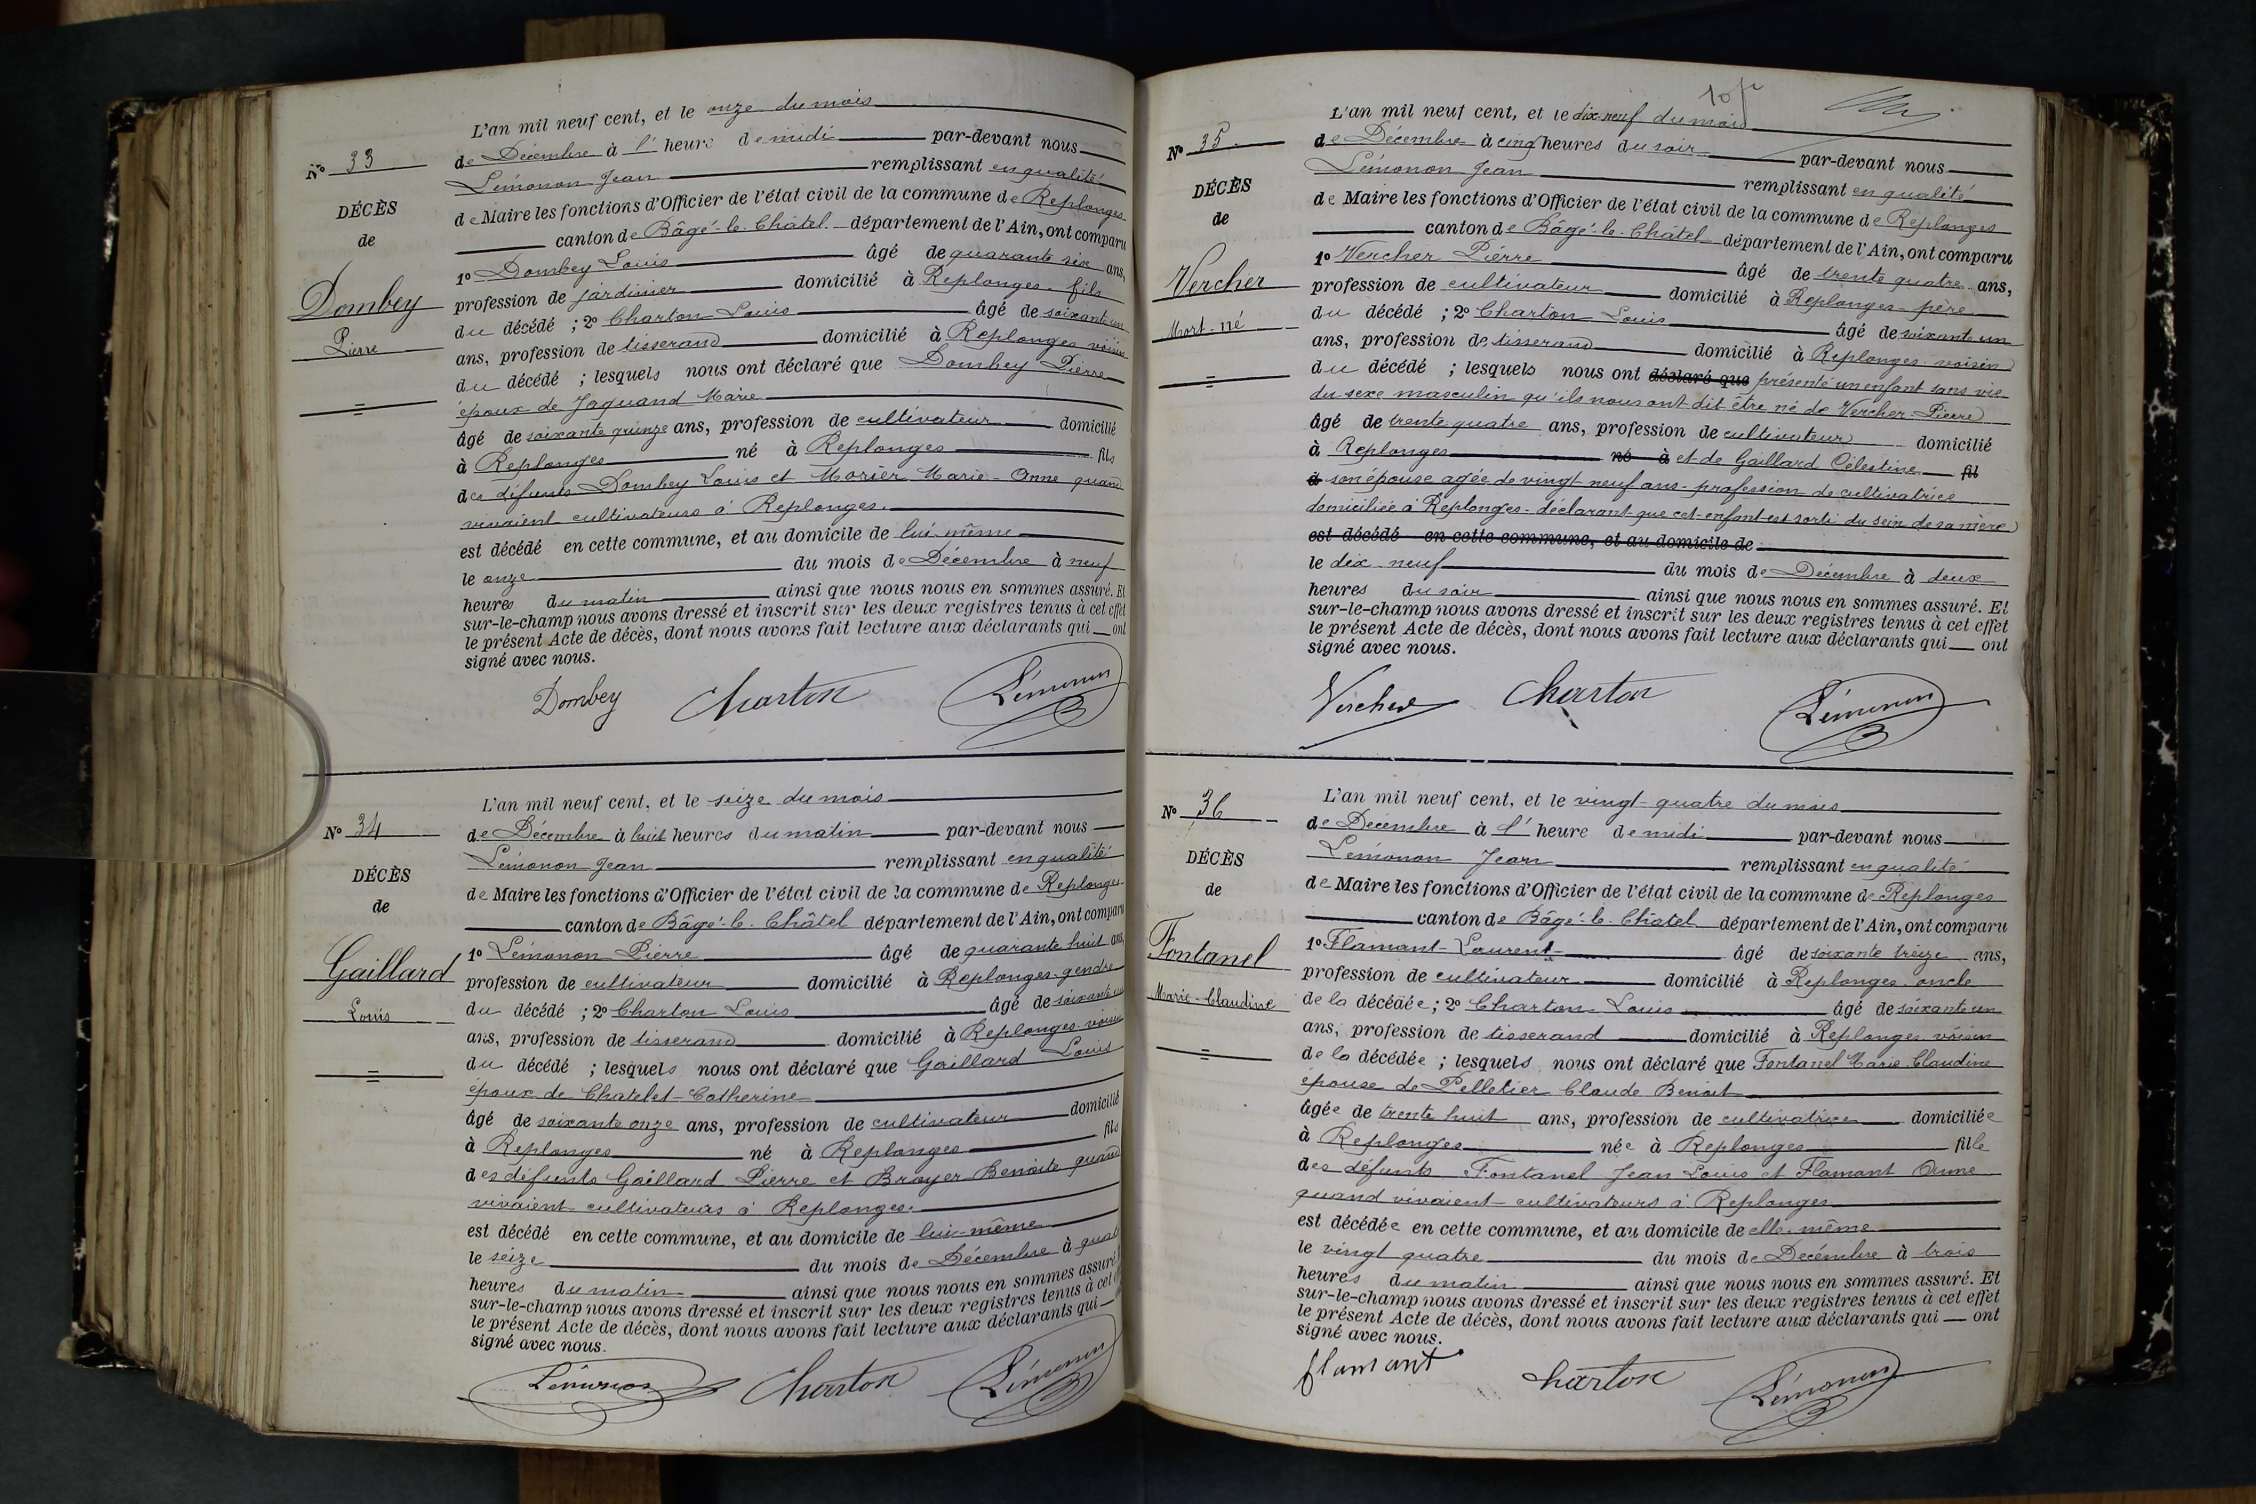 L'an mil neuf cent, et le onze du mois
N° 33
de Décembre à l' heure de midi par-devant nous
Lémonon Jean remplissant en qualité
DÉCÈS
de Maire les fonctions d'Officier de l'état civil de la commune de Replonges
de
canton de Bâgé-le-Châtel département de l'Ain, ont comparu
1° Dombey Louis âgé de quarante six ans,
Dombey
profession de jardinier domicilié à Replonges fils
du décédé ; 2° Charton Louis âgé de soixante un
Pierre
ans, profession de tisserand domicilié à Replonges voisin
du décédé ; lesquels nous ont déclaré que Dombey Pierre
époux de Jaquand Marie
âgé de soixante quinze ans, profession de cultivateur domicilié
à Replonges né à Replonges fils
des défunts Dombey Louis et Morier Marie-Anne quand
vivaient cultivateurs à Replonges.
est décédé en cette commune, et au domicile de lui-même
le onze du mois de Décembre à neuf
heures du matin ainsi que nous nous en sommes assuré. Et
sur-le-champ nous avons dressé et inscrit sur les deux registres tenus à cet effet
le présent Acte de décès, dont nous avons fait lecture aux déclarants qui ont
signé avec nous.
Dombey Charton Lémonon
L'an mil neuf cent, et le seize du mois
N° 34
de Décembre à huit heures du matin par-devant nous
Lémonon Jean remplissant en qualité
DÉCÈS
de Maire les fonctions d'Officier de l'état civil de la commune de Replonges
de
canton de Bâgé-le-Châtel département de l'Ain, ont comparu
1° Lémonon Pierre âgé de quarante huit ans,
Gaillard
profession de cultivateur domicilié à Replonges-gendre
du décédé ; 2° Charton Louis âgé de soixante un
Louis
ans, profession de tisserand domicilié à Replonges voisin
du décédé ; lesquels nous ont déclaré que Gaillard Louis
époux de Chatelet-Catherine
âgé de soixante onze ans, profession de cultivateur domicilié
à Replonges né à Replonges fils
des défunts Gaillard Pierre et Broyer Benoite quand
vivaient cultivateurs à Replonges.
est décédé en cette commune, et au domicile de lui-même
le seize du mois de Décembre à quat
heures du matin ainsi que nous nous en sommes assuré.
sur-le-champ nous avons dressé et inscrit sur les deux registres tenus à cet
le présent Acte de décès, dont nous avons fait lecture aux déclarants qui
signé avec nous.
Lémonon Charton Lémonon
10
L'an mil neuf cent, et le dix-neuf du mois
N° 35
de Décembre à cinq heures du soir par-devant nous
Lémonon Jean remplissant en qualité
DÉCÈS
de Maire les fonctions d'Officier de l'état civil de la commune de Replonges
de
canton de Bâgé-le-Châtel département de l'Ain, ont comparu
1° Vercher Pierre âgé de trente quatre ans,
Vercher
profession de cultivateur domicilié à Replonges-père
du décédé ; 2° Charton Louis âgé de soixante un
Mort-né
ans, profession de tisserand domicilié à Replonges voisin
du décédé ; lesquels nous ont déclaré que présenté un enfant sans vie
du sexe masculin qu'ils nous ont dit être né de Vercher-Pierre
âgé de trente quatre ans, profession de cultivateur domicilié
à Replonges né à et de Gaillard Célestine fil
d son épouse agée de vingt neuf ans-profession de cultivatrice
domiciliée à Replonges-déclarant-que cet-enfant-est sorti du sein de sa mère
est décédé en cette commune, et au domicile de
le dix-neuf du mois de Décembre à deux
heures du soir ainsi que nous nous en sommes assuré. Et
sur-le-champ nous avons dressé et inscrit sur les deux registres tenus à cet effet
le présent Acte de décès, dont nous avons fait lecture aux déclarants qui ont
signé avec nous.
Vercher Charton Lémonon
L'an mil neuf cent, et le vingt-quatre du mois
N° 36
de Décembre à l' heure de midi par-devant nous
Lémonon Jean remplissant en qualité
DÉCÈS
de Maire les fonctions d'Officier de l'état civil de la commune de Replonges
de
canton de Bâgé-le-Châtel département de l'Ain, ont comparu
1° Flamant-Laurent âgé de soixante treize ans,
Fontanel
profession de cultivateur domicilié à Replonges oncle
Marie-Claudine
de la décédée ; 2° Charton Louis âgé de soixante un
ans, profession de tisserand domicilié à Replonges voisin
de la décédée ; lesquels nous ont déclaré que Fontanel Marie Claudine
épouse de Pelletier Claude Benoit
âgée de trente huit ans, profession de cultivatrice domiciliée
à Replonges née à Replonges fille
des défunts Fontanel Jean Louis et Flamant
quand vivaient-cultivateurs à Replonges
est décédée en cette commune, et au domicile de elle-même
le vingt quatre du mois de Décembre à trois
heures du matin ainsi que nous nous en sommes assuré. Et
sur-le-champ nous avons dressé et inscrit sur les deux registres tenus à cet effet
le présent Acte de décès, dont nous avons fait lecture aux déclarants qui ont
signé avec nous.
flamant Charton Lémonon